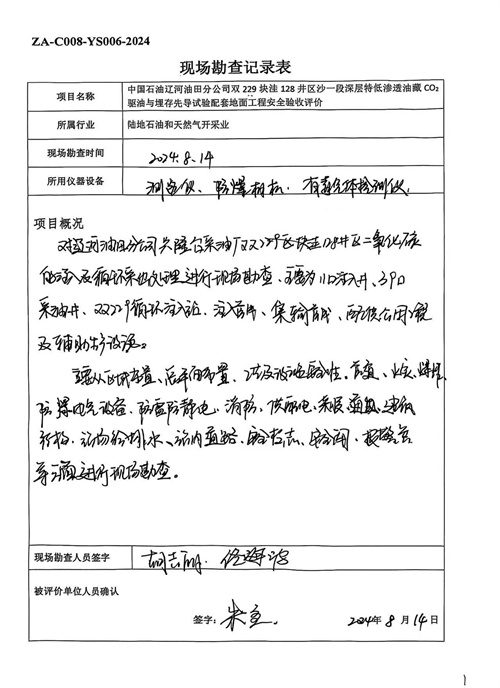 ZA-C008-YS006-2024
现场勘查记录表
项目名称
中国石油辽河油田分公司双 229 块洼 128 井区沙一段深层特低渗透油藏 CO₂
驱油与埋存先导试验配套地面工程安全验收评价
所属行业
陆地石油和天然气开采业
现场勘查时间
2024.8.14
所用仪器设备
测距仪、防爆相机、有毒气体检测仪。
项目概况
对辽河油田分公司兴隆台采油厂双229区块洼128井区二氧化碳
进行现场勘查、主要为11口注入井、39口
采油井、双229循环注入站、注入管线、集输管线、公用工程
及辅助生产设施。
主要从区域位置、总平面布置、
防爆电气设备、防雷防静电、消防、供配电、采暖、通风、建
筑结构、站场给排水、站内道路、安全标志、安全阀、
等方面进行现场勘查。
现场勘查人员签字
被评价单位人员确认
签字：
2024年 8 月 14 日
1